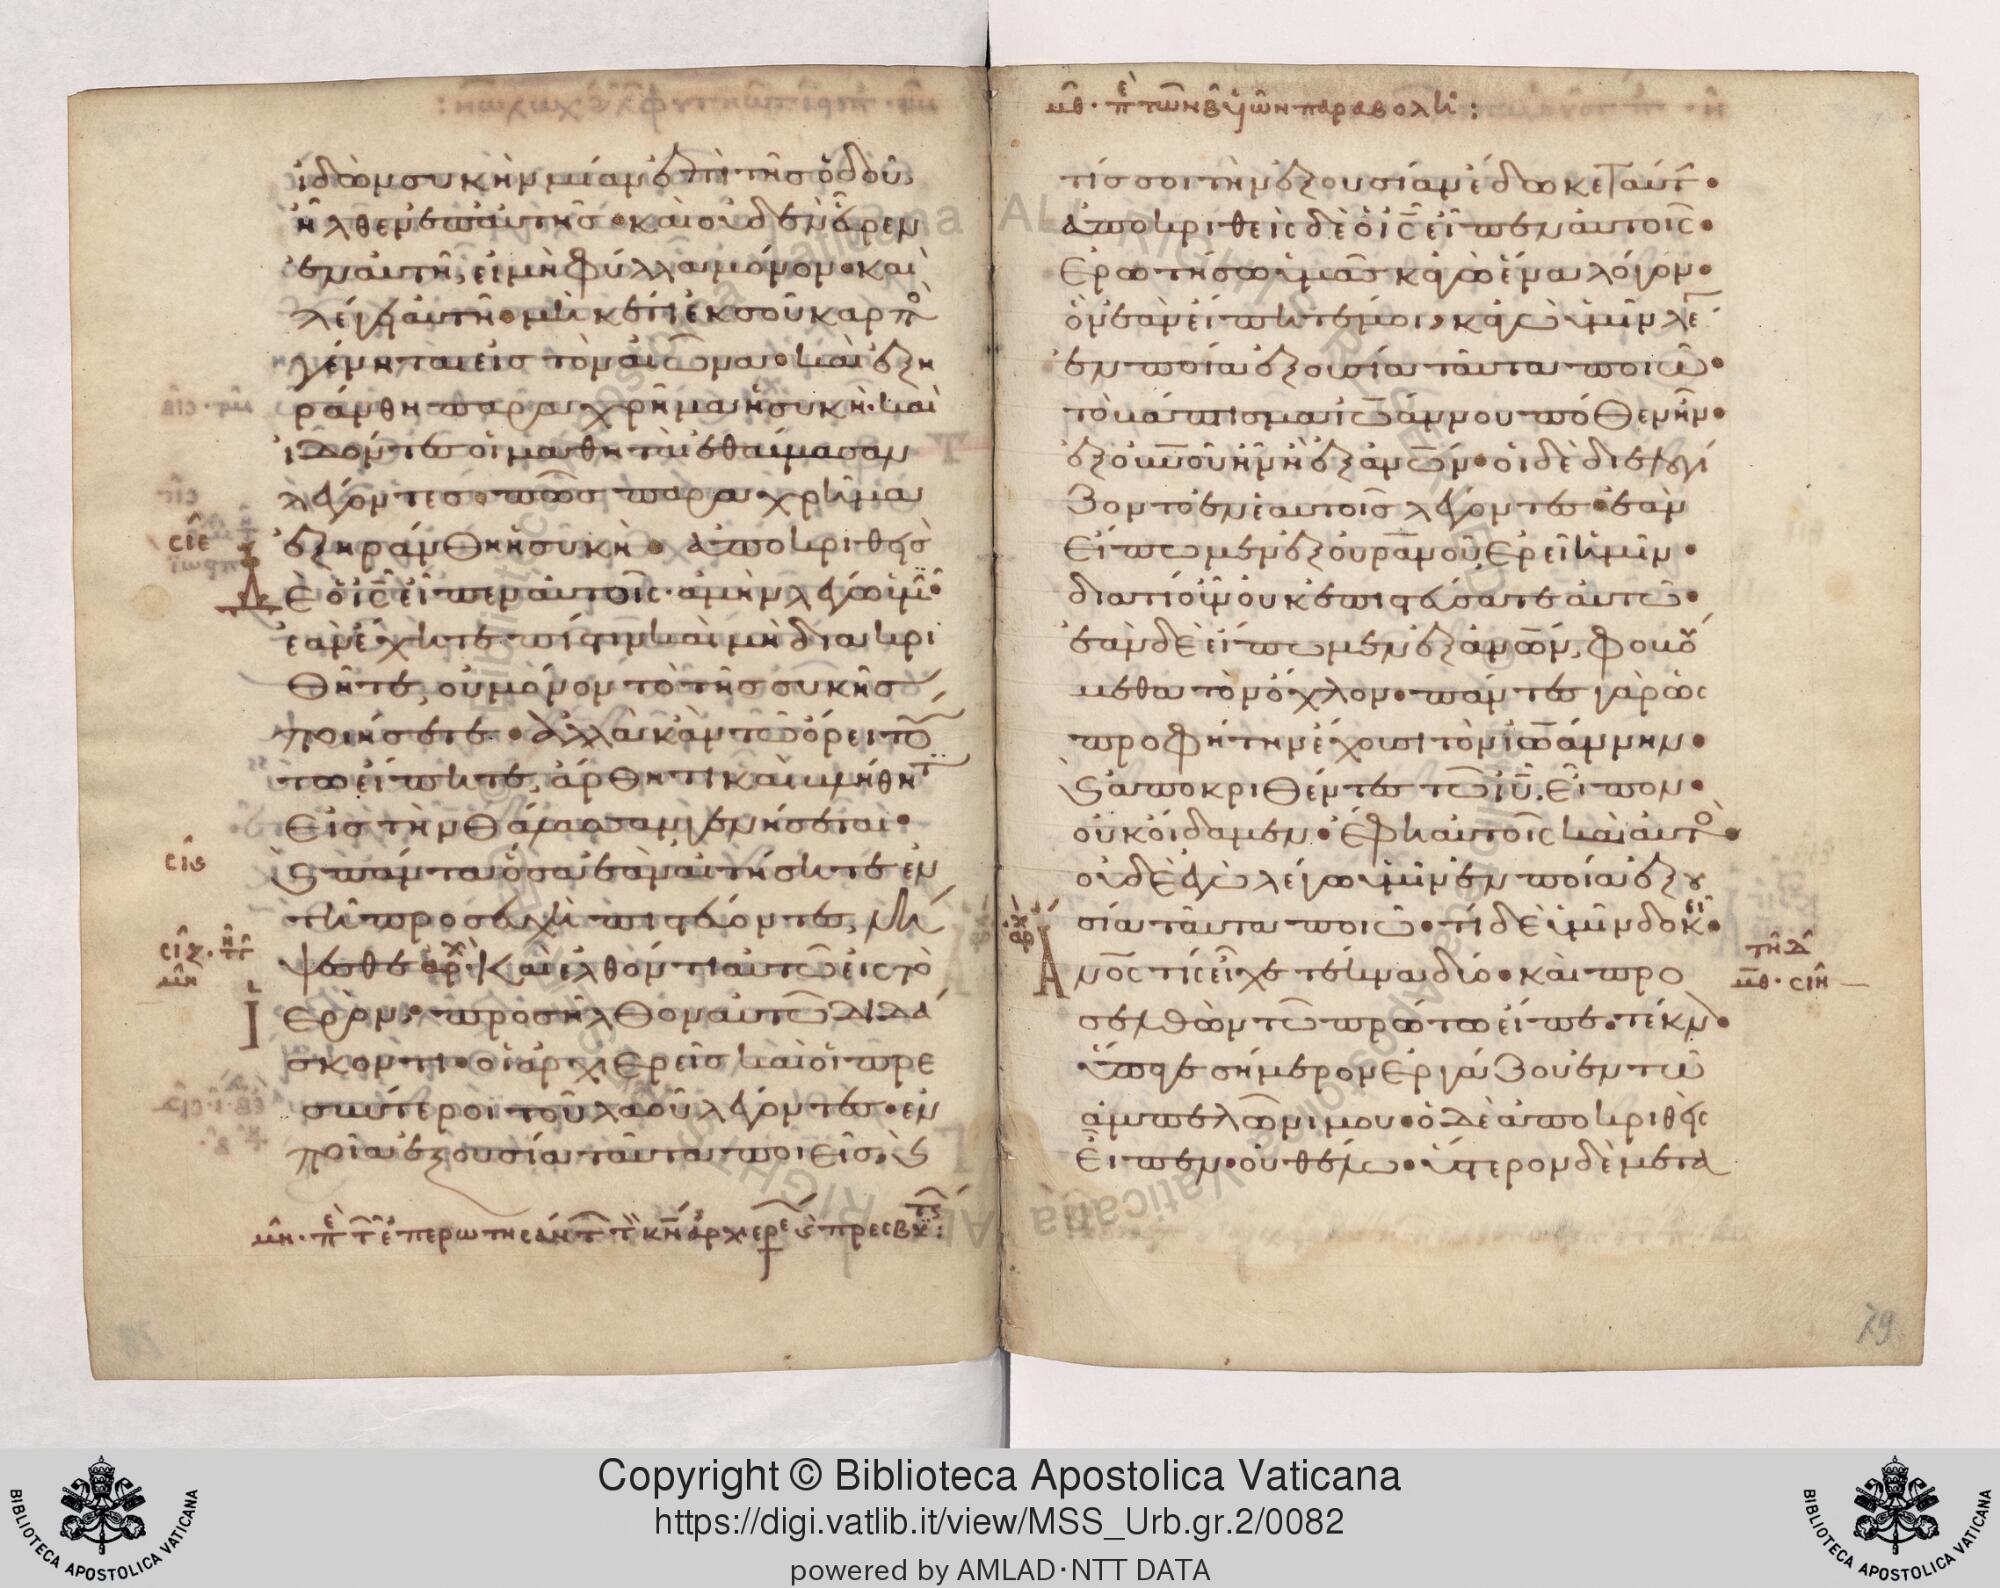 ἰδὼν συκὴν μίαν ἐπὶ τῆς ὁδοῦ,
ἦλθεν ἐπ' αὐτῆς· καὶ οὐδὲν εὗρεν
ἐν αὐτῇ, εἰ μὴ φύλλα μόνον· καὶ
λέγει αὐτῇ· μηκέτι ἐκ σοῦ καρπὸ
γένηται εἰς τὸν αἰῶνα· καὶ ἐξη
ράνθη παραχρῆμα ἡ συκῆ· καὶ
ἰδόντες οἱ μαθηταὶ ἐθαύμασαν
λέγοντες· πῶς παραχρῆμα
σιε
ἐξηράνθη ἡ συκῆ· ἀποκριθεὶς
δὲ ὁ ις εἶπεν αὐτοῖς· ἀμὴν λέγω ὑμῖ·
ἐὰν ἔχητε πίστιν καὶ μὴ διακρι
θῆτε, οὐ μόνον τὸ τῆς συκῆς
ποιήσετε· ἀλλὰ κἂν τῶ ὄρει τού
τω εἴπητε, ἄρθητι καὶ βλήθητ
εἰς τὴν θάλασσαν γενήσεται·
σις
ϗ πάντα ὅσα ἐὰν αἰτήσητε ἐν
τῇ προσευχῇ πιστεύοντες, λή
σιζ
μη
ψεσθε αρχ· Καὶ ἐλθόντι αὐτῶ εἰς τὸ
ἱερὸν, προσῆλθον αὐτῶ διδά
σκοντι· οἱ ἀρχιερεῖς καὶ οἱ πρε
σβύτεροι τοῦ λαοῦ λέγοντες· ἐν
ποία ἐξουσία ταῦτα ποιεῖς, ϗ
μη· πε τ ἐπερωτησάντ τ κν ἀρχιερε ϗ πρεσβυ:
μθ· πε τῶν β υἱῶν παραβολή:
τίς σοι τὴν ἐξουσίαν ἔδωκε ταύτ·
ἀποκριθεὶς δὲ ὁ ις εἶπεν αὐτοῖς·
Ἐρωτήσω ὑμᾶς κἀγὼ ἕνα λόγον·
ὃν ἐὰν εἴπητέ μοι, κἀγὼ ὑμῖν λέ
ἐν ποία ἐξουσία ταῦτα ποιῶ·
τὸ βάπτισμα ἰωάννου πόθεν ἦν·
ἐξ οὐνοῦ ἦν ἢ ἐξ ἀνῶν· οἱ δὲ διελογί
ζοντο ἐν ἑαυτοῖς λέγοντες· ἐὰν
εἴπωμεν ἐξ οὐρανοῦ, ἐρεῖ ἡμῖν·
διατί οὖν οὐκ ἐπιστεύσατε αὐτῶ·
ἐὰν δὲ εἴπωμεν ἐξ ἀνῶν, φοβού
μεθα τὸν ὄχλον· πάντες γὰρ ὡς
προφήτην ἔχουσι τὸν ἰωάννην·
ϗ ἀποκριθέντες τῶ ιυ, εἶπον·
οὐκ οἴδαμεν· ἔφη αὐτοῖς καὶ αὐτὸ·
οὐδὲ ἐγὼ λέγω ὑμῖν ἐν ποία ἐξου
σία ταῦτα ποιῶ· τί δὲ ὑμῖν δοκεῖ·
αρχ
τη Δ
μθ· σιη
Ἄνος τὶς εἶχε τέκνα δύο· καὶ προ
σελθὼν τῶ πρώτω εἶπε· τέκν·
ὕπαγε σήμερον ἐργάζου ἐν τῶ
ἀμπελῶνι μου· ὁ δὲ ἀποκριθεὶς
εἶπεν· οὐ θέλω· ὕστερον δὲ μετα
79
Copyright © Biblioteca Apostolica Vaticana
https://digi.vatlib.it/view/MSS_Urb.gr.2/0082
powered by AMLAD·NTT DATA
BIBLIOTECA APOSTOLICA VATICANA
BIBLIOTECA APOSTOLICA VATICANA